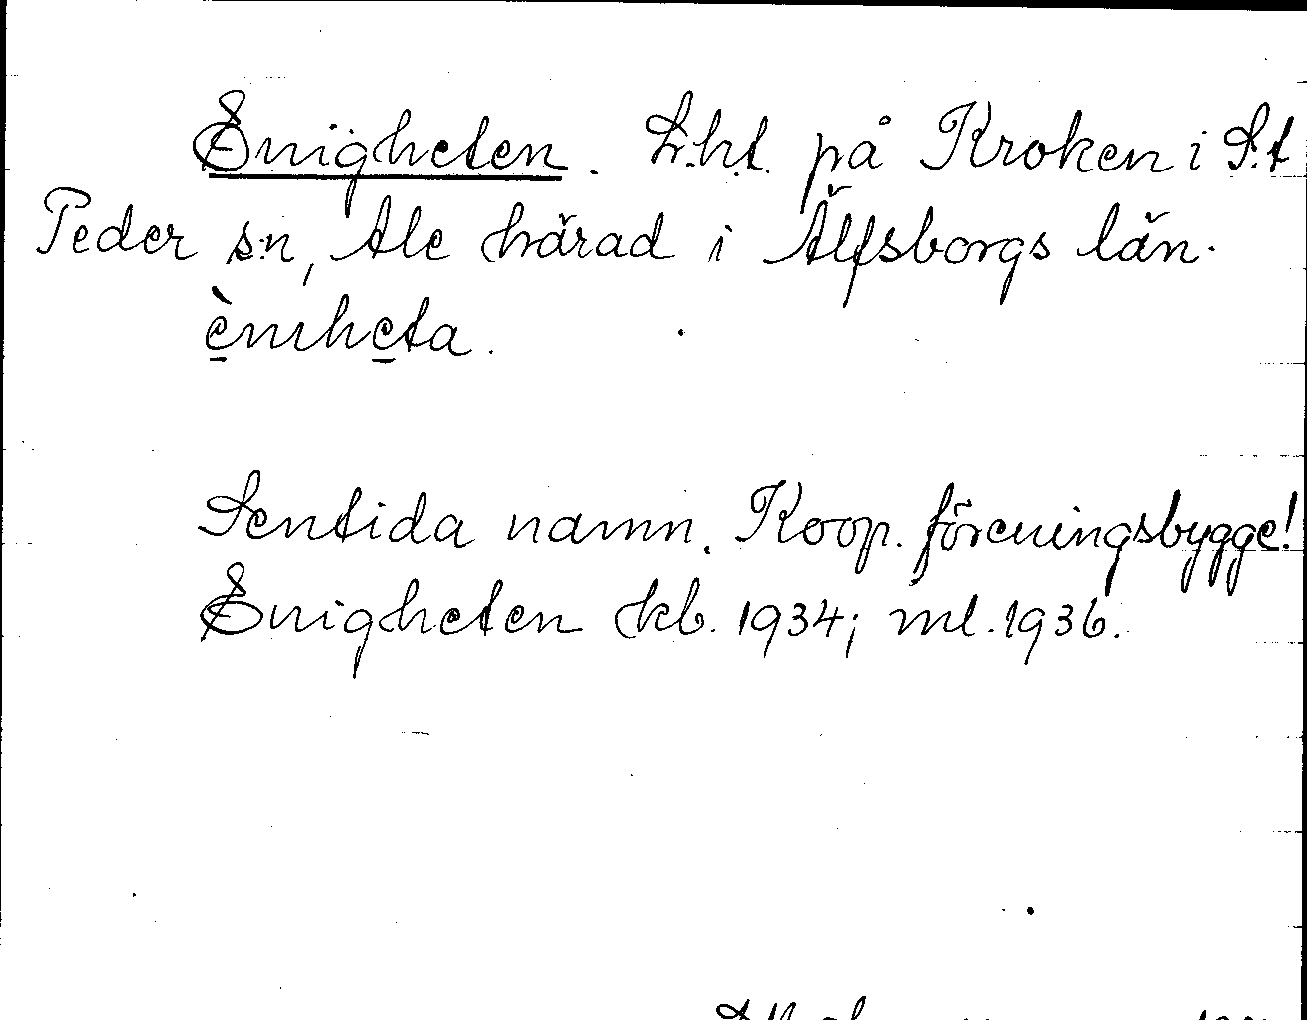 Enigheten. L:ht. på Kroken i S:t
Peder s:n, Ale härad i Älfsborgs län.
è̱nıhe̱ta.
Sentida namn. Koop. föreningsbygge!
Enigheten kb. 1934; ml. 1936.